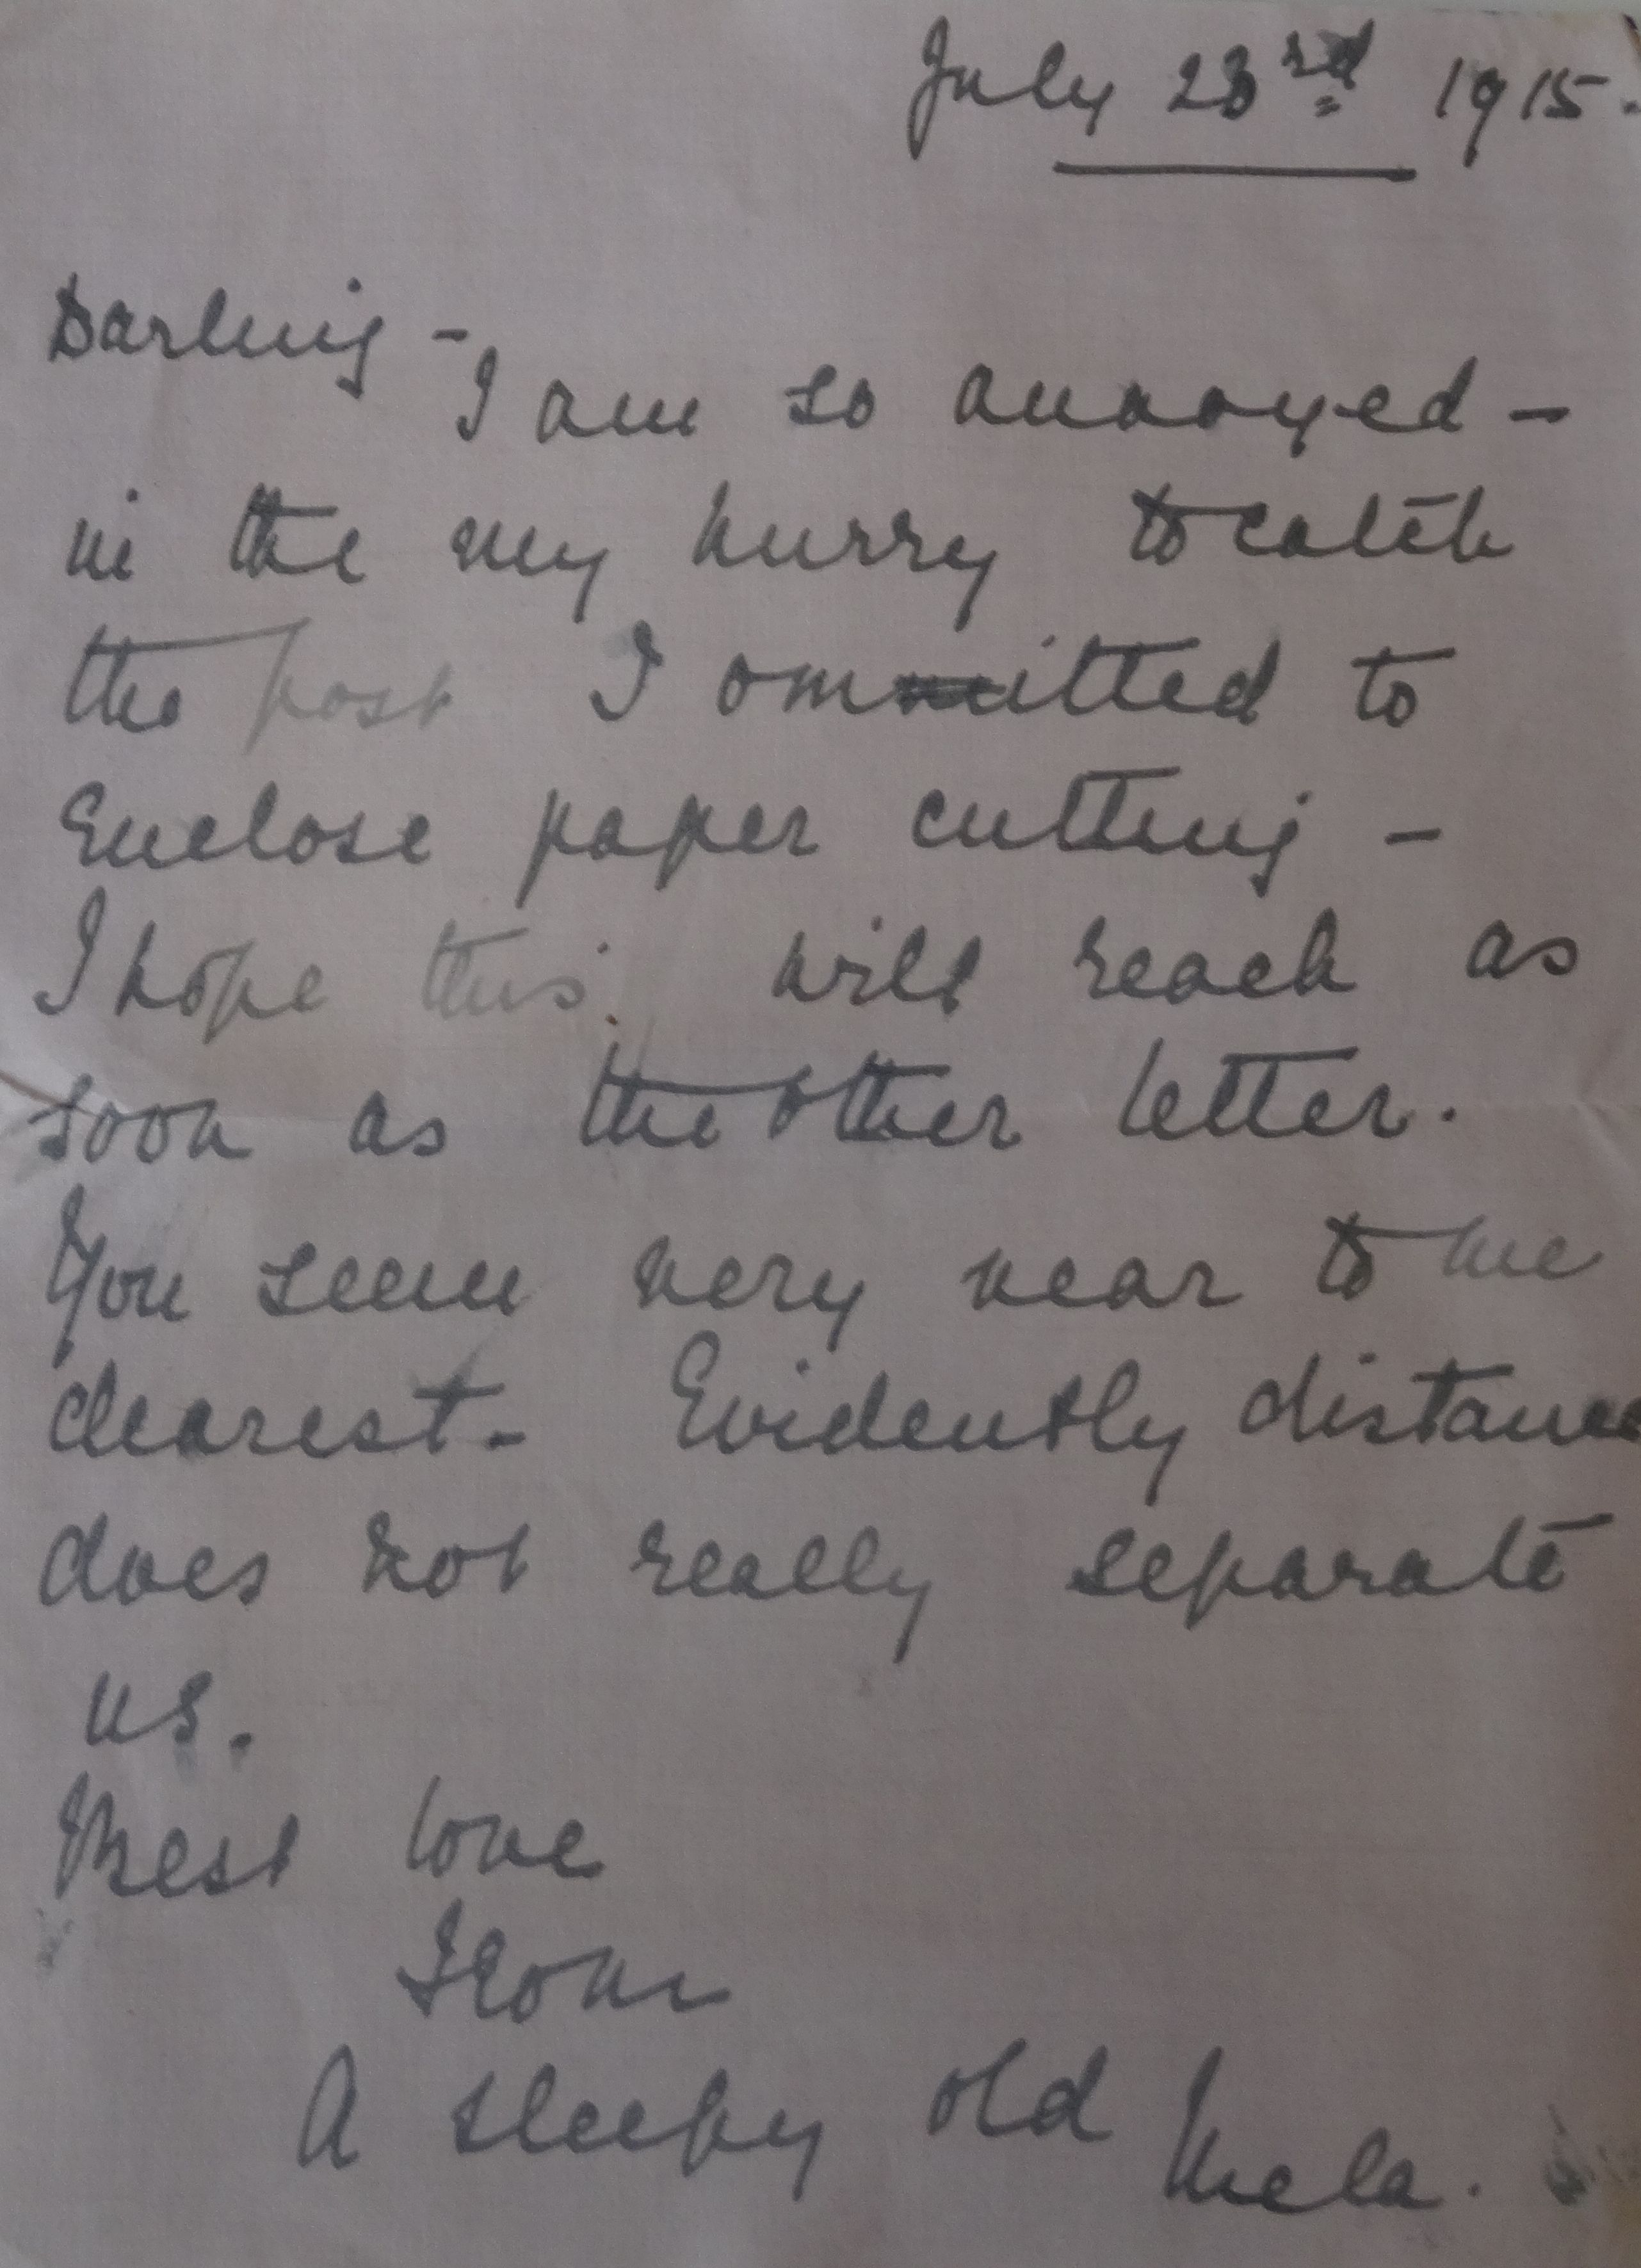 July 23rd 1915.
Darling -
I am so annoyed -
in the my hurry to catch
the post I omitted to
Enclose paper cutting -
I hope this will reach as
soon as the other letter.
You seem very near to me
dearest - Evidently distance
does not really separate
us.
Best love
From
A sleepy old Mela.